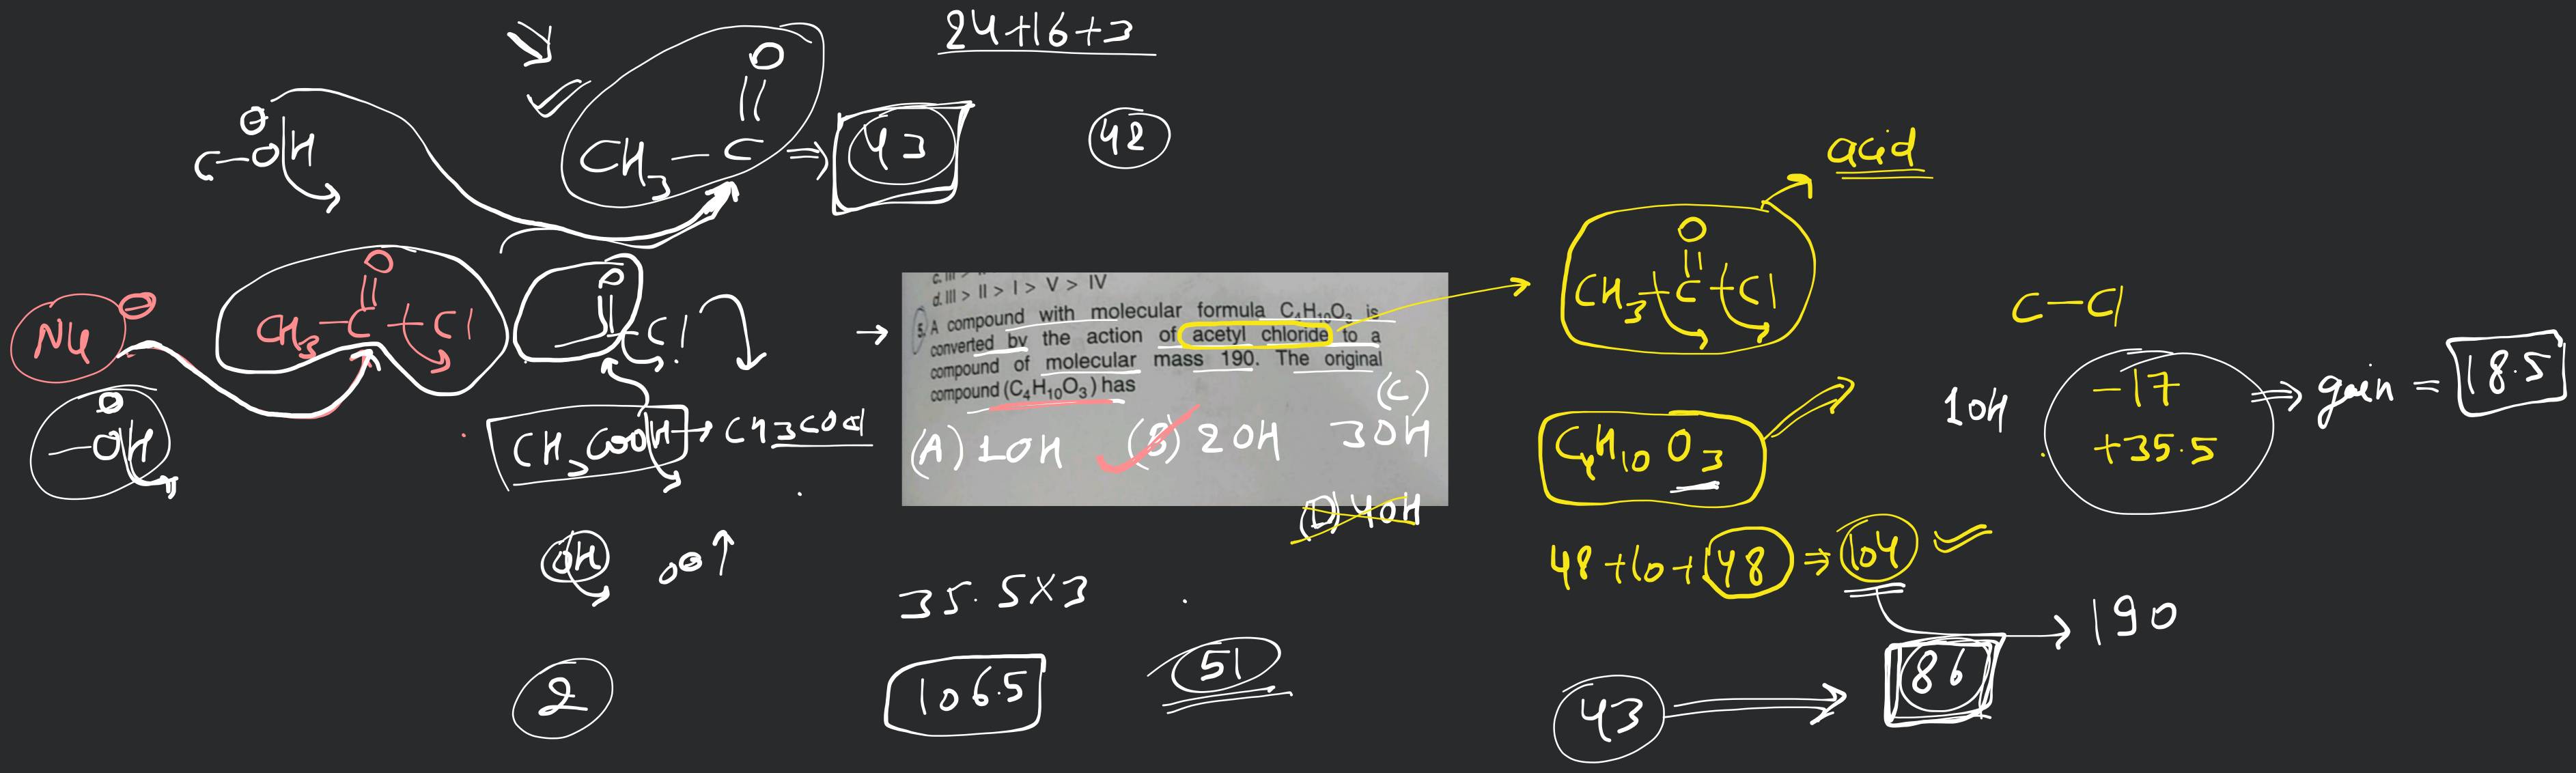 24+16+3
O
||
CH3 – C ⇒ 43
42
⊖
C–OH
acid
O
||
CH3–C–Cl
Nu⊖
O
||
CH3–C–Cl
O
Cl
–OH
CH3COOH → CH3COCl
OH O⊖↑
2
→
d. III > II > I > V > IV
5. A compound with molecular formula C4H10O3 is
converted by the action of acetyl chloride to a
compound of molecular mass 190. The original
compound (C4H10O3) has
(A) 1OH (B) 2OH (C) 3OH
(D) 4OH
35.5×3
106.5
51
C–Cl
1OH
-17
+35.5
⇒ gain = 18.5
C4H10O3
48+10+48 ⇒ 104
→ 190
43 ⇒ 86